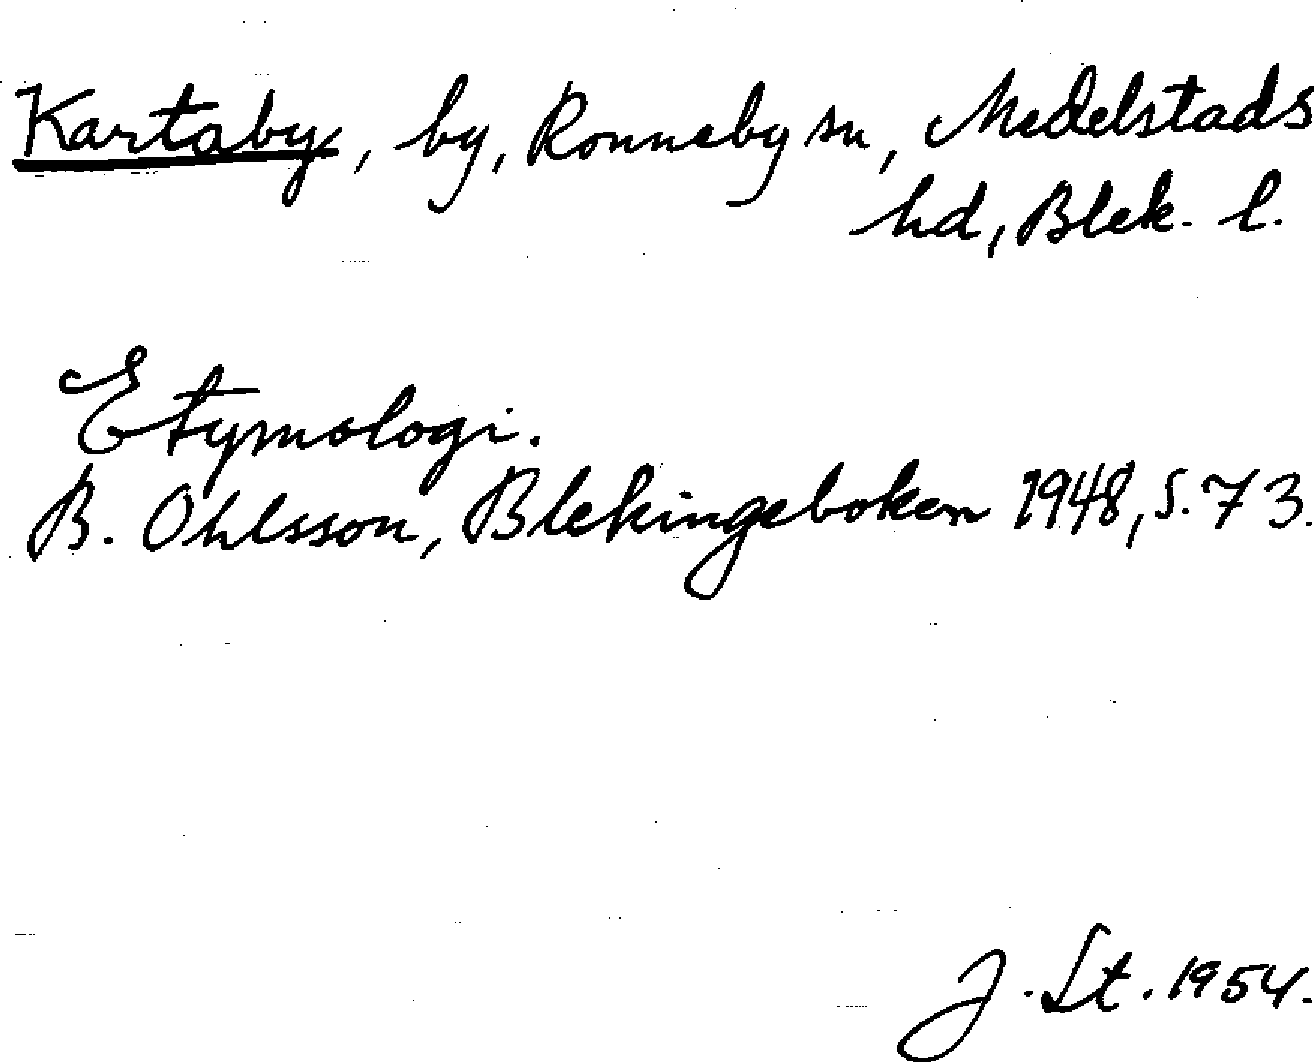 Kartaby, by, Ronneby sn, Medelstads
hd, Blek. l.
Etymologi.
B. Ohlsson, Blekingeboken 1948, s. 73.
J. St. 1954.